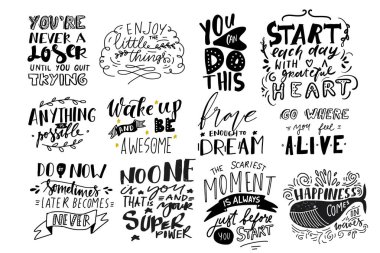 YOU'RE
NEVER A
LOSER
UNTIL YOU QUIT
TRYING
ENJOY
the
little
things
YOU
CAN
DO
THIS
START
each day
WITH a
grateful
HEART
ANYTHING
IS
possible
wake up
AND BE
AWESOME
brave
ENOUGH TO
DREAM
GO WHERE
you feel
ALIVE
DO IT NOW
Sometimes
LATER BECOMES
NEVER
NO ONE
IS you
THAT IS AND
YOUR
SUPER
POWER
THE SCARIEST
MOMENT
IS ALWAYS
just before
YOU START
HAPPINESS
COMES
IN
waves